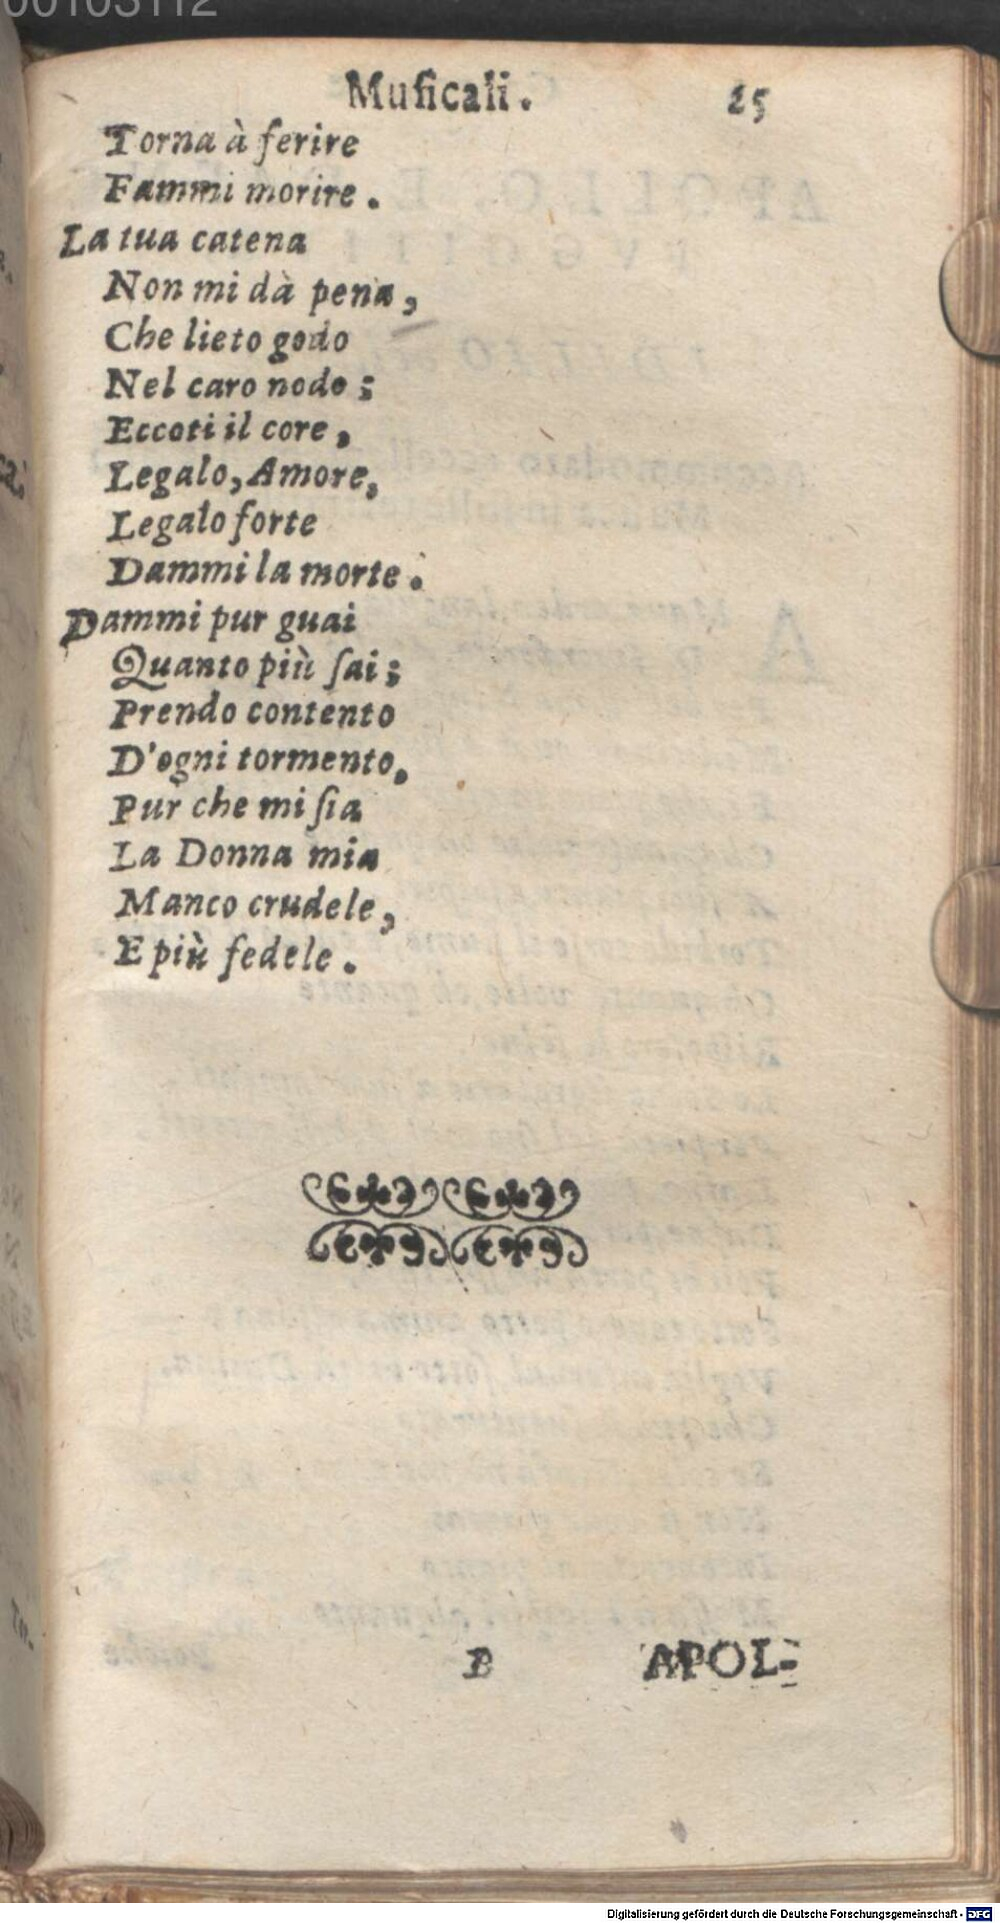 00103112
Muſicali. 25
Torna à ferire
Fammi morire.
La tua catena
Non mi dà pena,
Che lieto godo
Nel caro nodo;
Eccoti il core,
Legalo, Amore,
Legalo forte
Dammi la morte.
Dammi pur guai
Quanto più ſai;
Prendo contento
D'ogni tormento,
Pur che mi ſia
La Donna mia
Manco crudele,
E più fedele.
B APOL-
Digitalisierung gefördert durch die Deutsche Forschungsgemeinschaft - DFG